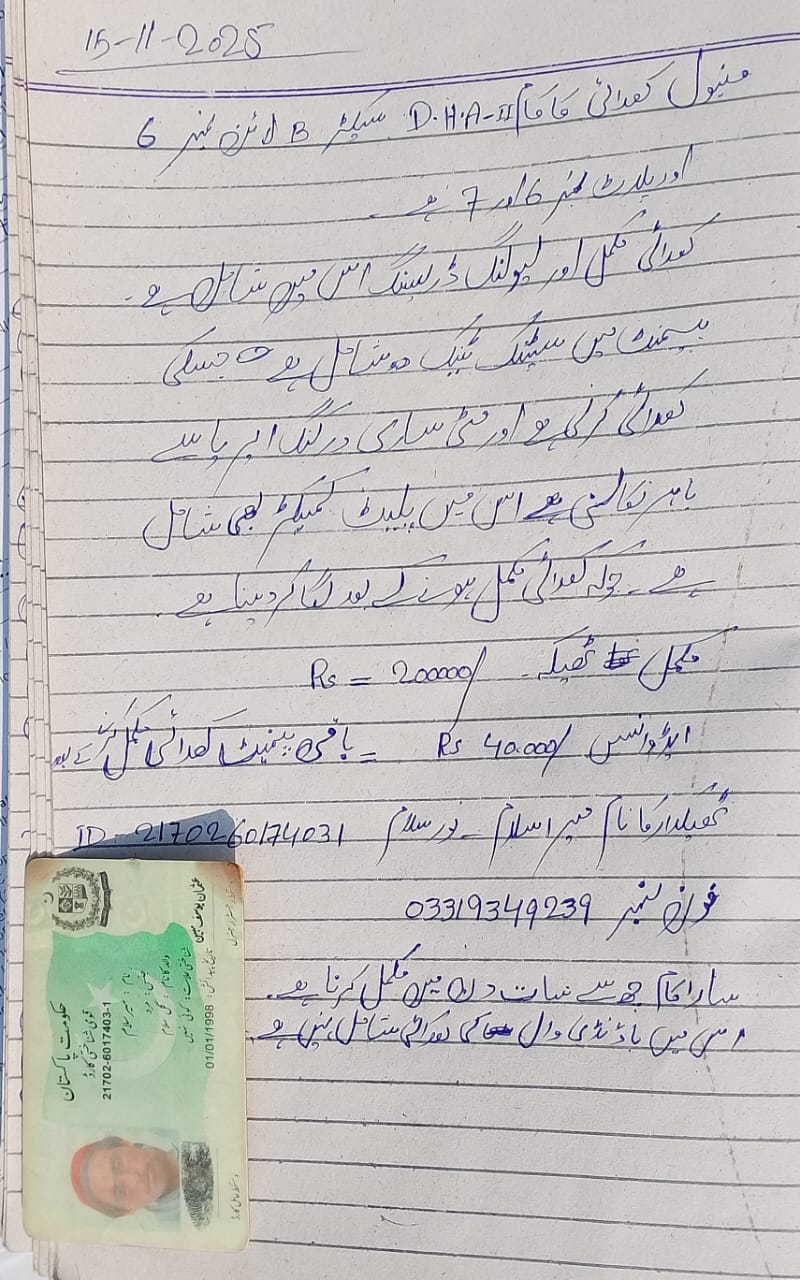 15-11-2025
مینول کھدائی کا کام D.H.A-II سیکٹر B لائن نمبر 6
اور پلاٹ نمبر 6 اور 7 ہے۔
کھدائی مکمل اور لیولنگ ڈریسنگ اس میں شامل ہے۔
بیسمنٹ میں سپٹنک ٹینک دو شامل ہے جسکی
کھدائی کرنی ہے اور مٹی ساری ورکنگ ایریا سے
باہر نکالنی ہے اس میں پلیٹ کمپیکٹر بھی شامل
ہے۔ جو کہ کھدائی مکمل ہونے کے بعد لگا کر دینا ہے۔
مکمل ٹھیکہ۔ Rs = 200000/
ایڈوانس Rs 40.000/ = باقی پیمنٹ کھدائی مکمل کے بعد
ٹھیکیدار کا نام میر اسلام۔ نور سلام ID - 2170260174031
فون نمبر 03319349239
سارا کام چھ سے سات دن میں مکمل کرنا ہے۔
اس میں باؤنڈری وال کی کھدائی شامل نہیں ہے۔
حکومت پاکستان
قومی شناختی کارڈ
21702-6017403-1
نام : میر سلام
جنس : مرد
والد کا نام :
شناختی علامت : کوئی نہیں
تاریخ پیدائش : 01/01/1998
عثمان یوسف مبین